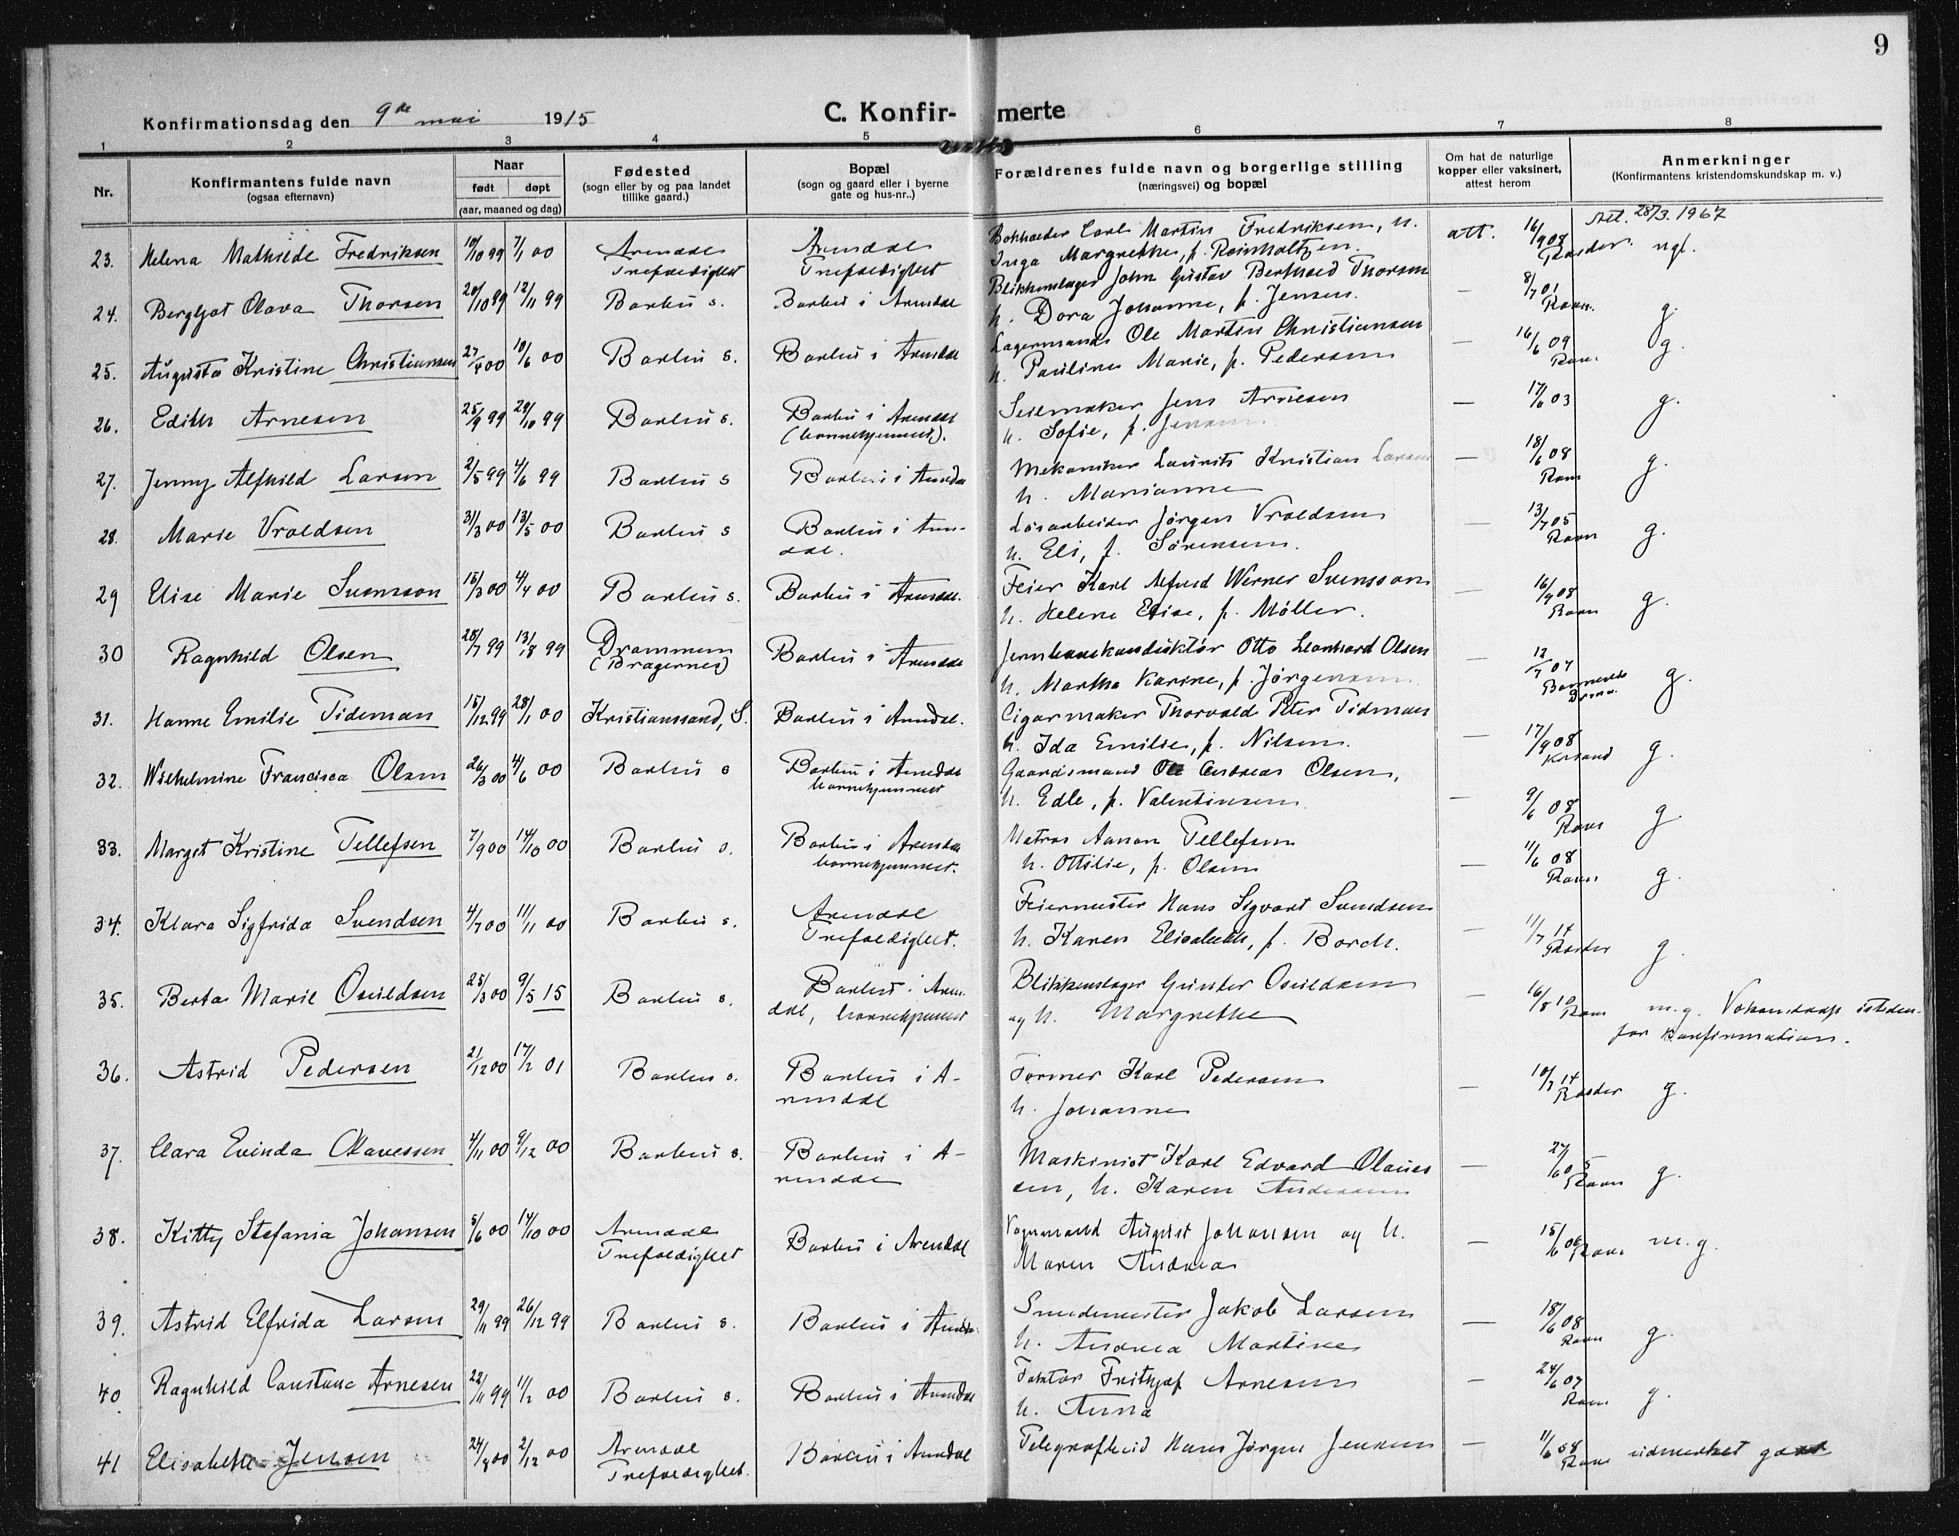 9
Konfirmationsdag den 9de mai 1915
C. Konfir- merte
1 2 3 4 5 6 7 8
Nr.
Konfirmantens fulde navn
(ogsaa efternavn)
Naar
født døpt
(aar, maaned og dag)
Fødested
(sogn eller by og paa landet
tillike gaard.)
Bopæl
(sogn og gaard eller i byerne
gate og hus-nr.,)
Forældrenes fulde navn og borgerlige stilling
(næringsvei) og bopæl
Om hat de naturlige
kopper eller vaksinert,
attest herom
Anmerkninger
(Konfirmantens kristendomskundskap m. v.)
Att. 28/3. 1967
23. Helena Mathilde Fredriksen 10/10 99 7/1 00 Arendal Trefoldighet Arendal Trefoldighet Bokholder Carl Martin Fredriksen, h.
Inga Margrethe, f. Reinholtzen. att. 16/9 08 ngl.
24. Bergljot Olava Thorsen 20/10 99 12/11 99 Barbu s. Barbu i Arendal Blikkenslager John Gustav Berthold Thorsen
h. Dora Johanne, f. Jensen. — 8/7 01 Ravn. g.
25. Augusta Kristine Christiansen 27/4 00 10/6 00 Barbu s. Barbu i Arendal Lagermand Ole Martin Christiansen
h. Pauline Marie, f. Pedersen — 16/6 09 Ravn g.
26. Edith Arnesen 25/9 99 29/10 99 Barbu s. Barbu i Arendal (barnehjemmet). Seilmaker Jens Arnesen
h. Sofie, f. Jensen — 17/6 03 g.
27. Jenny Alfhild Larsen 2/5 99 4/6 99 Barbu s Barbu i Arendal Mekaniker Laurits Kristian Larsen
h. Marianne — 18/6 08 Ravn g.
28. Marie Vroldsen 31/3 00 13/5 00 Barbu s Barbu i Aren-
dal. Løsarbeider Jørgen Vroldsen
h. Eli, f. Sørensen. — 13/7 05 Ravn g.
29 Elise Marie Svensson 15/3 00 4/4 00 Barbu s. Barbu i Arendal. Feier Karl Alfred Werner Svensson
h. Helene Elise, f. Møller. — 16/9 08 Ravn g.
30 Ragnhild Olsen 28/7 99 13/8 99 Drammen (Bragernes) Barbu i Arendal Jernbanekonduktør Otto Leonhard Olsen
h. Martha Karine, f. Jørgensen — 12/7 07 g.
31. Hanne Emilie Tideman 15/12 99 28/1 00 Kristianssand, S. Barbu i Arendal. Cigarmaker Thorvald Peter Tidman
h. Ida Emilie, f. Nilsen. — 17/9 08 Krsand g.
32. Wilhelmine Francisca Olsen 26/3 00 4/6 00 Barbu s Barbu i Arendal barnehjemmet Gaardsmand Ole Andreas Olsen,
h. Edle, f. Valentinsen — 9/6 08 Ravn g.
33. Marget Kristine Tellefsen 7/9 00 14/10 00 Barbu s. Barbu i Arendal barnehjemmet. Matros Aanon Tellefsen
h. Ottilie, f. Olsen — 11/6 08 Ravn g.
34. Klara Sigfrida Svendsen 4/7 00 11/11 00 Barbu s. Arendal Trefoldighet. Feiermester Hans Sigvart Svendsen
h. Karen Elisabeth, f. Borch. — 11/7 14 g.
35. Berta Marie Osuldsen 25/3 00 9/5 15 Barbu s. Barbu i Aren-
dal, barnehjemmet Blikkenslager Gunter Osuldsen
og h. Margrethe — 16/8 10 Ravn m.g. Voksendaap isteden-
for konfirmation.
36. Astrid Pedersen 21/12 00 17/2 01 Barbu s. Barbu i A-
rendal Former Karl Pedersen
h. Johanne — 10/7 14 g.
37. Clara Evinda Olavessen 4/11 00 9/12 00 Barbu s. Barbu i A-
rendal Maskinist Karl Edvard Olaves
sen, h. Karen Andersen — Ravn g.
38. Kitty Stefania Johansen 5/6 00 14/10 00 Arendal Trefoldighet Barbu i Arendal Vognmand August Johansen og h.
Maren Andrea — 15/6 06 Ravn m.g.
39. Astrid Elfrida Larsen 29/11 99 26/12 99 Barbu s. Barbu i Arendal Smedemester Jakob Larsen
h. Andrea Martine — 18/6 08 Ravn g.
40 Ragnhild Constanc Arnesen 22/11 99 11/2 00 Barbu s. Barbu i Arendal Faktor Frithjof Arnesen
h. Anna — 24/6 07 Ravn g.
41 Elisabeth Jensen 24/8 00 2/12 00 Arendal Trefoldighet. Barbu i Arendal Telegrafbud Hans Jørgen Jensen — 11/6 08 Ravn udmerket godt